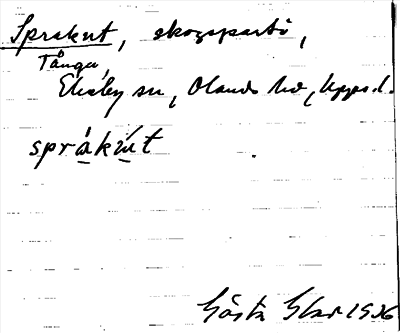 Sprakut, skogsparti,
Tånga,
Ekeby sn, Olands hd, Uppsl.
språkut
Gösta 1936